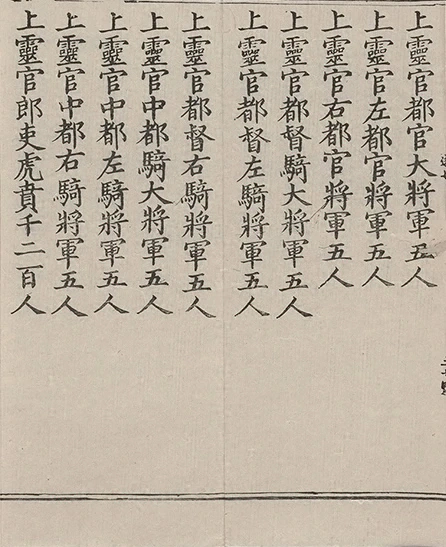 上靈官都官大將軍五人
上靈官左都官將軍五人
上靈官右都官將軍五人
上靈官都督騎大將軍五人
上靈官都督左騎將軍五人
上靈官都督右騎將軍五人
上靈官中都騎大將軍五人
上靈官中都左騎將軍五人
上靈官中都右騎將軍五人
上靈官郎吏虎賁千二百人